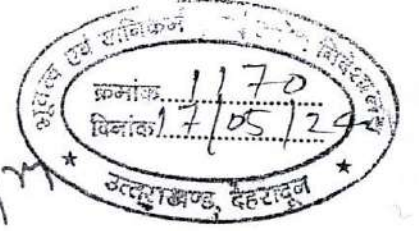 भूतत्व एवं खनिकर्म निदेशालय
क्रमांक 1170
दिनांक 17/05/24
उत्तराखण्ड, देहरादून